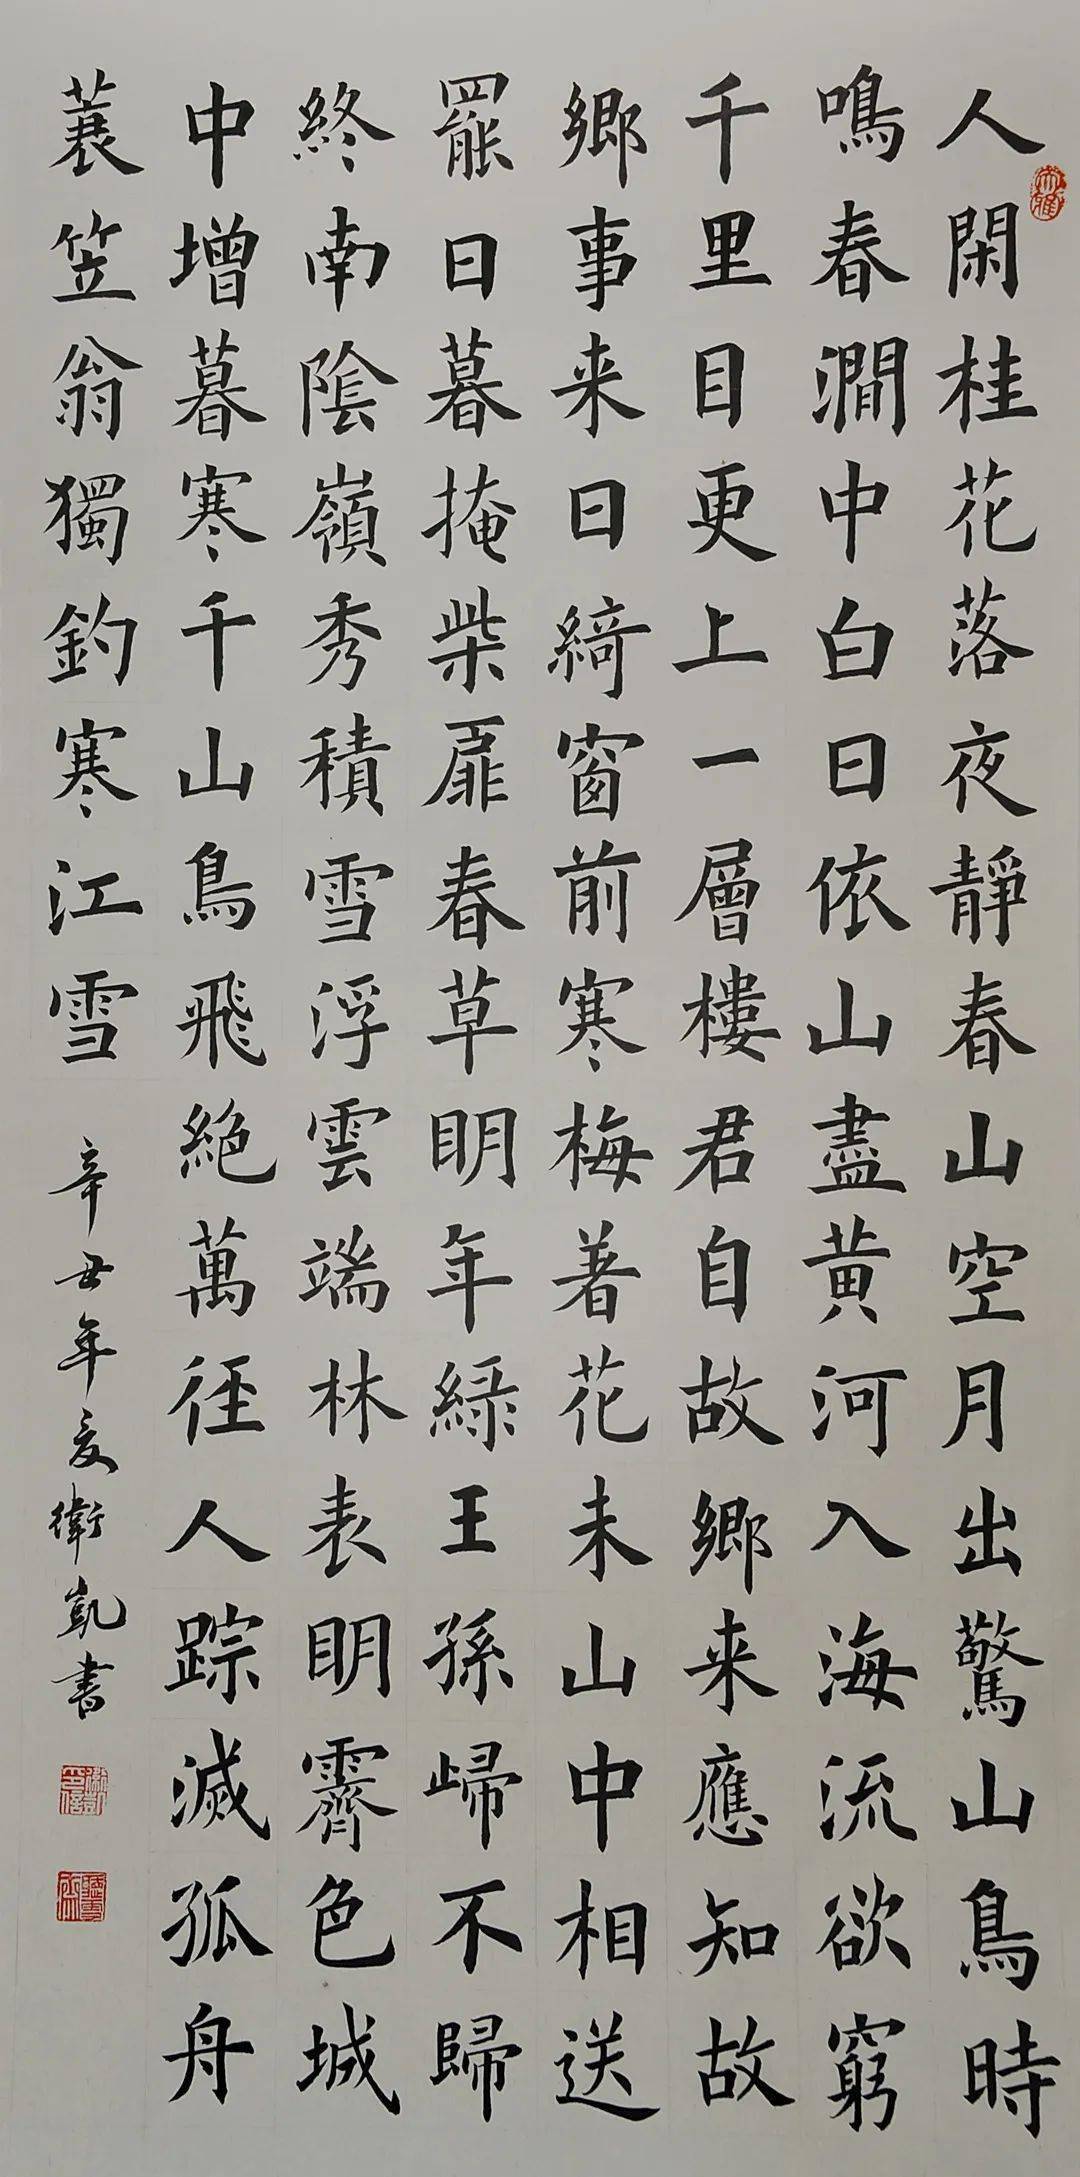 人閑桂花落夜靜春山空月出驚山鳥時
鳴春澗中白日依山盡黄河入海流欲窮
千里目更上一層樓君自故鄉来應知故
鄉事来日綺窗前寒梅著花未山中相送
罷日暮掩柴扉春草明年綠王孫歸不歸
終南陰嶺秀積雪浮雲端林表明霽色城
中增暮寒千山鳥飛絶萬徑人踪滅孤舟
蓑笠翁獨釣寒江雪
辛丑年夏衛凱書